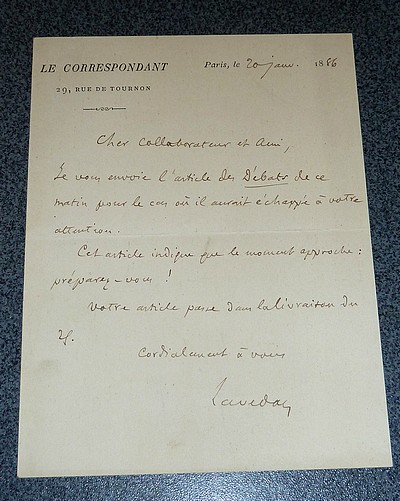 LE CORRESPONDANT
29, RUE DE TOURNON
Paris, le 20 janv. 1886
Cher Collaborateur et Ami,
Je vous envoie l'article des Débats de ce
matin pour le cas où il aurait échappé à votre
attention.
Cet article indique que le moment approche :
préparez-vous !
Votre article passe dans la livraison du
25.
Cordialement à vous
Lavedan